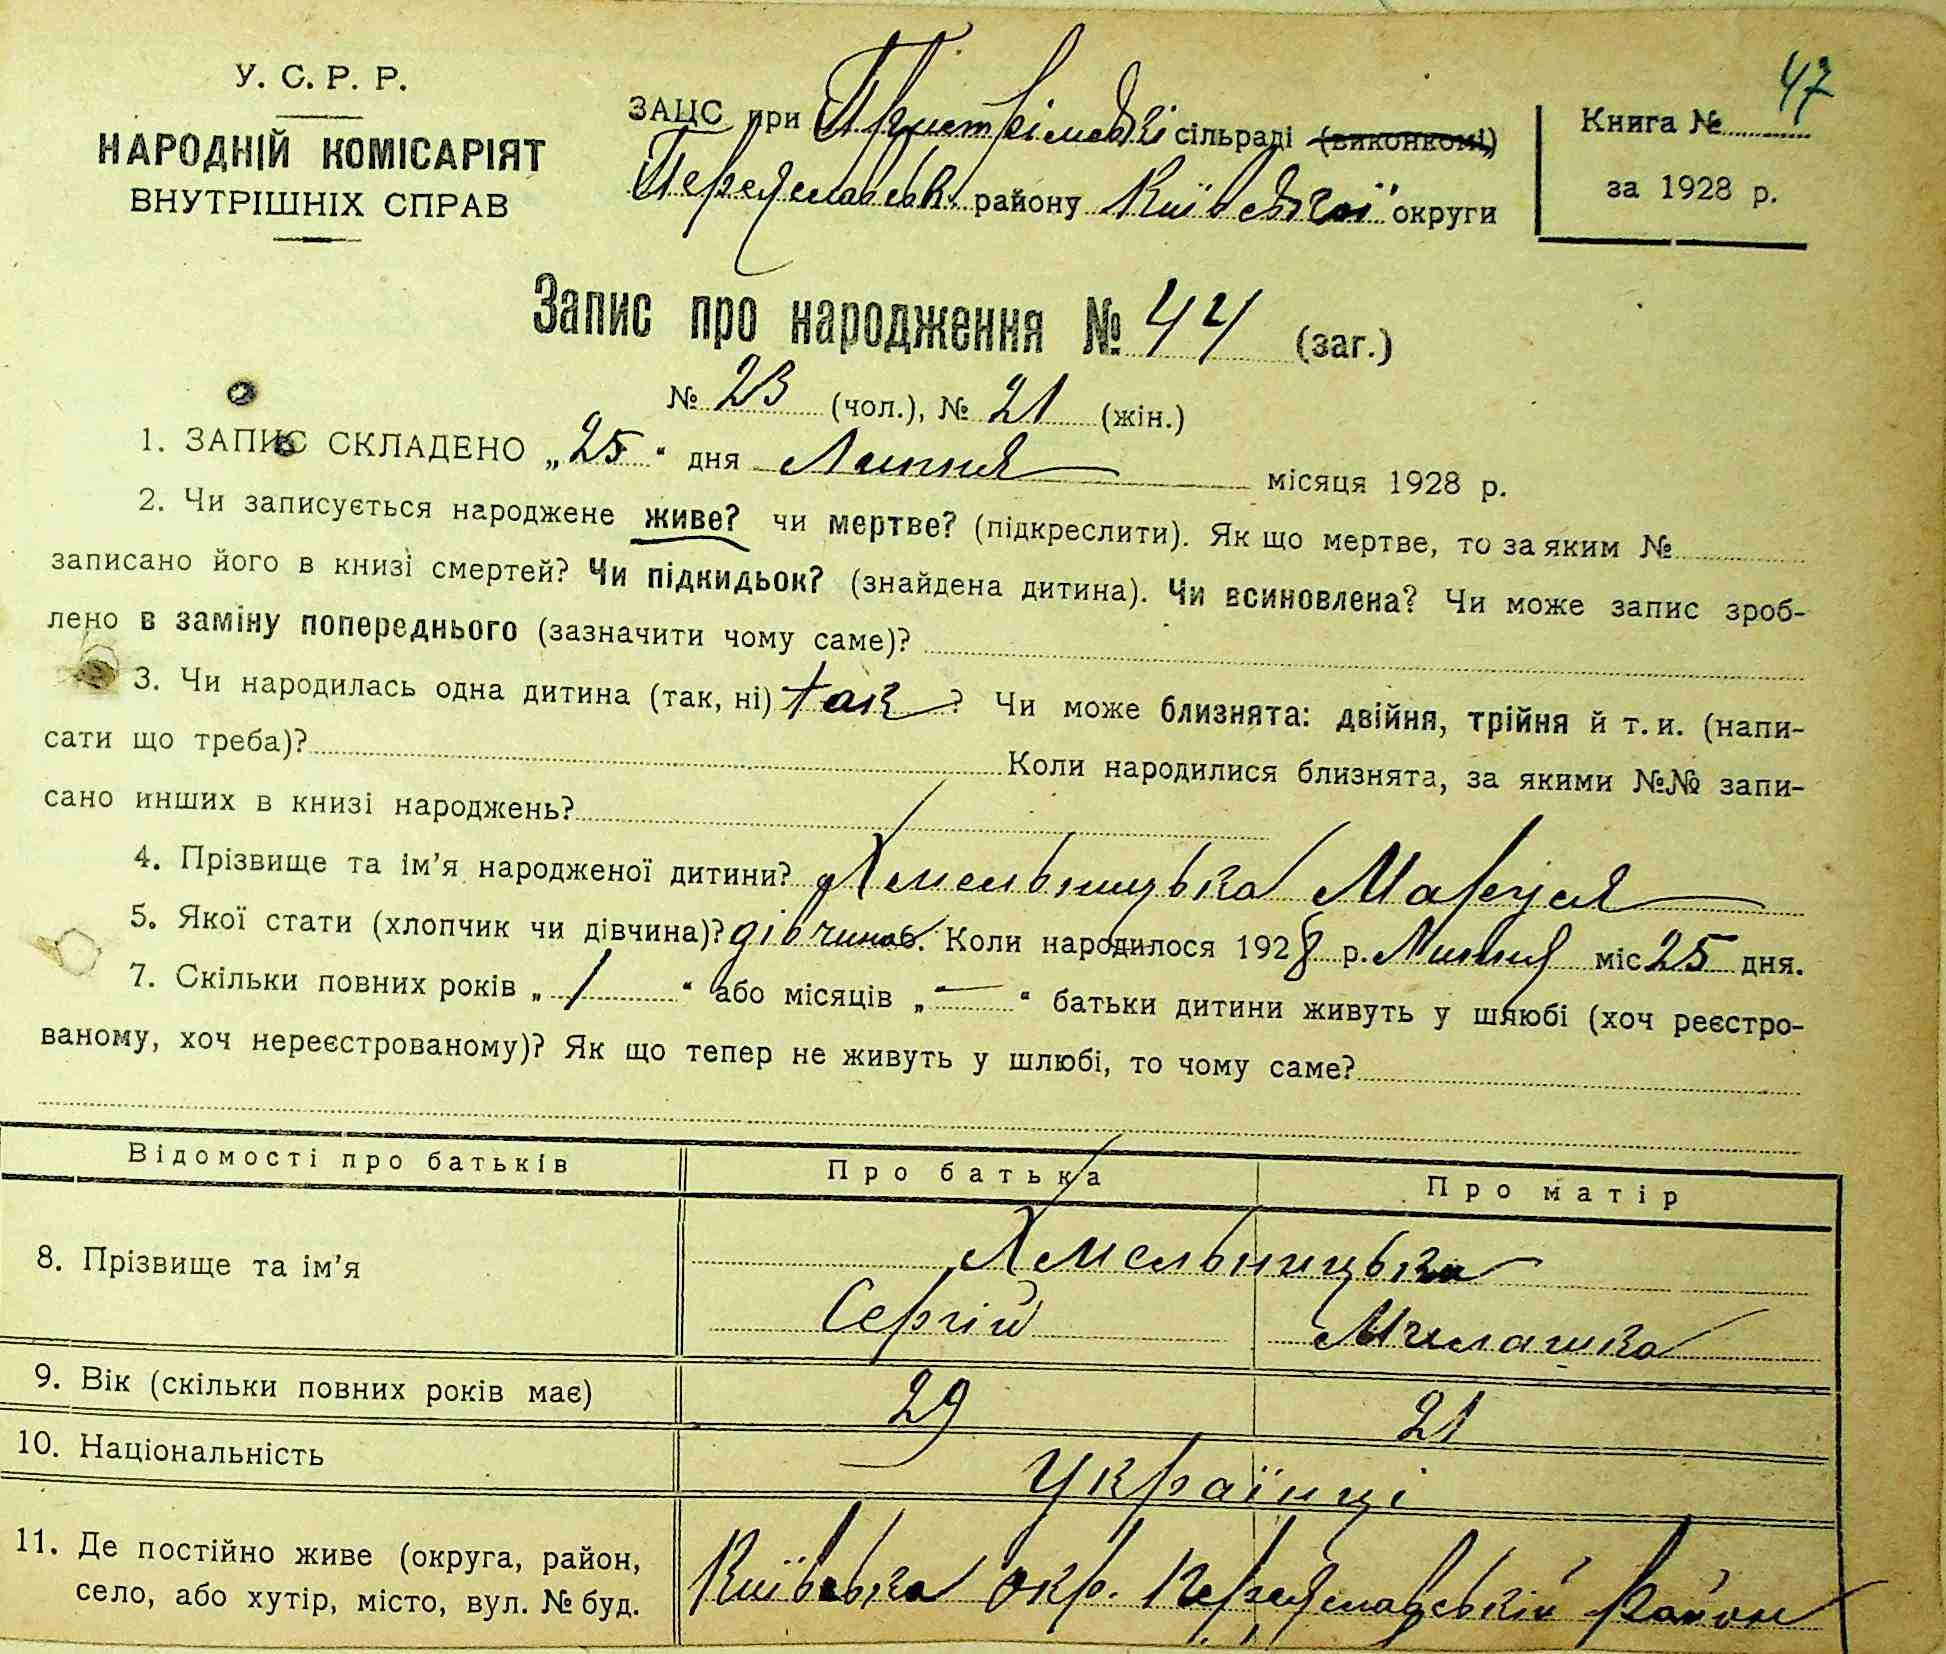 47
У. С. Р. Р.
НАРОДНІЙ КОМІСАРІЯТ
ВНУТРІШНІХ СПРАВ
ЗАЦС при Пристромській сільраді (виконкомі)
Переяславськ. району Київської округи
Книга №
за 1928 р.
Запис про народження № 44 (заг.)
№ 23 (чол.), № 21 (жін.)
1. ЗАПИС СКЛАДЕНО „25“ дня Липня місяця 1928 р.
2. Чи записується народжене живе? чи мертве? (підкреслити). Як що мертве, то за яким №
записано його в книзі смертей? Чи підкидьок? (знайдена дитина). Чи всиновлена? Чи може запис зроб-
лено в заміну попереднього (зазначити чому саме)?
3. Чи народилась одна дитина (так, ні) так ? Чи може близнята: двійня, трійня й т. и. (напи-
сати що треба)? Коли народилися близнята, за якими №№ запи-
сано инших в книзі народжень?
4. Прізвище та ім’я народженої дитини? Хмельницька Маруся
5. Якої стати (хлопчик чи дівчина)? дівчина. Коли народилося 1928 р. Липня міс 25 дня.
7. Скільки повних років „ 1 “ або місяців „ — “ батьки дитини живуть у шлюбі (хоч реєстро-
ваному, хоч нереєстрованому)? Як що тепер не живуть у шлюбі, то чому саме?
Відомості про батьків Про батька Про матір
8. Прізвище та ім’я Хмельницька
Сергій Милашка
9. Вік (скільки повних років має) 29 21
10. Національність Українці
11. Де постійно живе (округа, район,
село, або хутір, місто, вул. № буд. Київська окр. Переяславський район